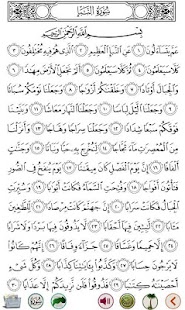 سُورَةُ النَّبَإِ
بِسْمِ اللَّهِ الرَّحْمَٰنِ الرَّحِيمِ
عَمَّ يَتَسَآءَلُونَ ١ عَنِ ٱلنَّبَإِ ٱلْعَظِيمِ ٢ ٱلَّذِى هُمْ فِيهِ مُخْتَلِفُونَ ٣
كَلَّا سَيَعْلَمُونَ ٤ ثُمَّ كَلَّا سَيَعْلَمُونَ ٥ أَلَمْ نَجْعَلِ ٱلْأَرْضَ مِهَٰدًا ٦
وَٱلْجِبَالَ أَوْتَادًا ٧ وَخَلَقْنَٰكُمْ أَزْوَٰجًا ٨ وَجَعَلْنَا نَوْمَكُمْ سُبَاتًا ٩
وَجَعَلْنَا ٱلَّيْلَ لِبَاسًا ١٠ وَجَعَلْنَا ٱلنَّهَارَ مَعَاشًا ١١ وَبَنَيْنَا
فَوْقَكُمْ سَبْعًا شِدَادًا ١٢ وَجَعَلْنَا سِرَاجًا وَهَّاجًا ١٣ وَأَنزَلْنَا
مِنَ ٱلْمُعْصِرَٰتِ مَآءً ثَجَّاجًا ١٤ لِّنُخْرِجَ بِهِۦ حَبًّا وَنَبَاتًا ١٥ وَجَنَّٰتٍ
أَلْفَافًا ١٦ إِنَّ يَوْمَ ٱلْفَصْلِ كَانَ مِيقَٰتًا ١٧ يَوْمَ يُنفَخُ فِى ٱلصُّورِ
فَتَأْتُونَ أَفْوَاجًا ١٨ وَفُتِحَتِ ٱلسَّمَآءُ فَكَانَتْ أَبْوَٰبًا ١٩ وَسُيِّرَتِ
ٱلْجِبَالُ فَكَانَتْ سَرَابًا ٢٠ إِنَّ جَهَنَّمَ كَانَتْ مِرْصَادًا ٢١ لِّلطَّٰغِينَ
مَـَٔابًا ٢٢ لَّٰبِثِينَ فِيهَآ أَحْقَابًا ٢٣ لَّا يَذُوقُونَ فِيهَا بَرْدًا وَلَا شَرَابًا
٢٤ إِلَّا حَمِيمًا وَغَسَّاقًا ٢٥ جَزَآءً وِفَاقًا ٢٦ إِنَّهُمْ كَانُوا۟
لَا يَرْجُونَ حِسَابًا ٢٧ وَكَذَّبُوا۟ بِـَٔايَٰتِنَا كِذَّابًا ٢٨ وَكُلَّ شَىْءٍ
أَحْصَيْنَٰهُ كِتَٰبًا ٢٩ فَذُوقُوا۟ فَلَن نَّزِيدَكُمْ إِلَّا عَذَابًا ٣٠